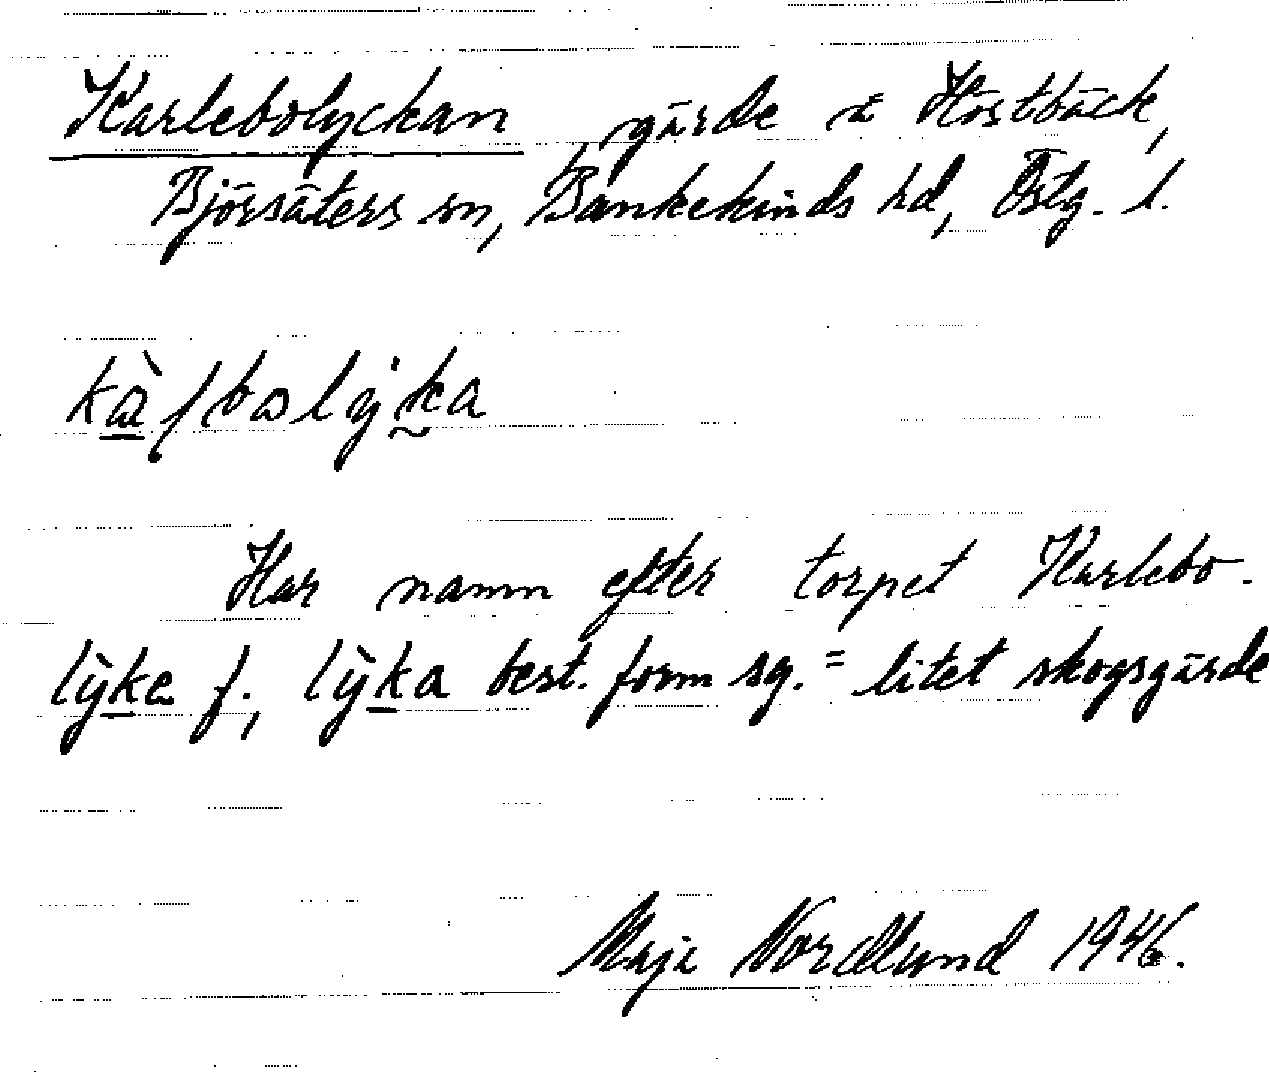 Karlebolyckan gärde å Höstbäck,
Björsäters sn, Bankekinds hd, Östg. l.
kàʃbolýka
Har namn efter torpet Karlebo.
lỳka f., lỳka best. form sg. = litet skogsgärde
Maja Nordlund 1946.